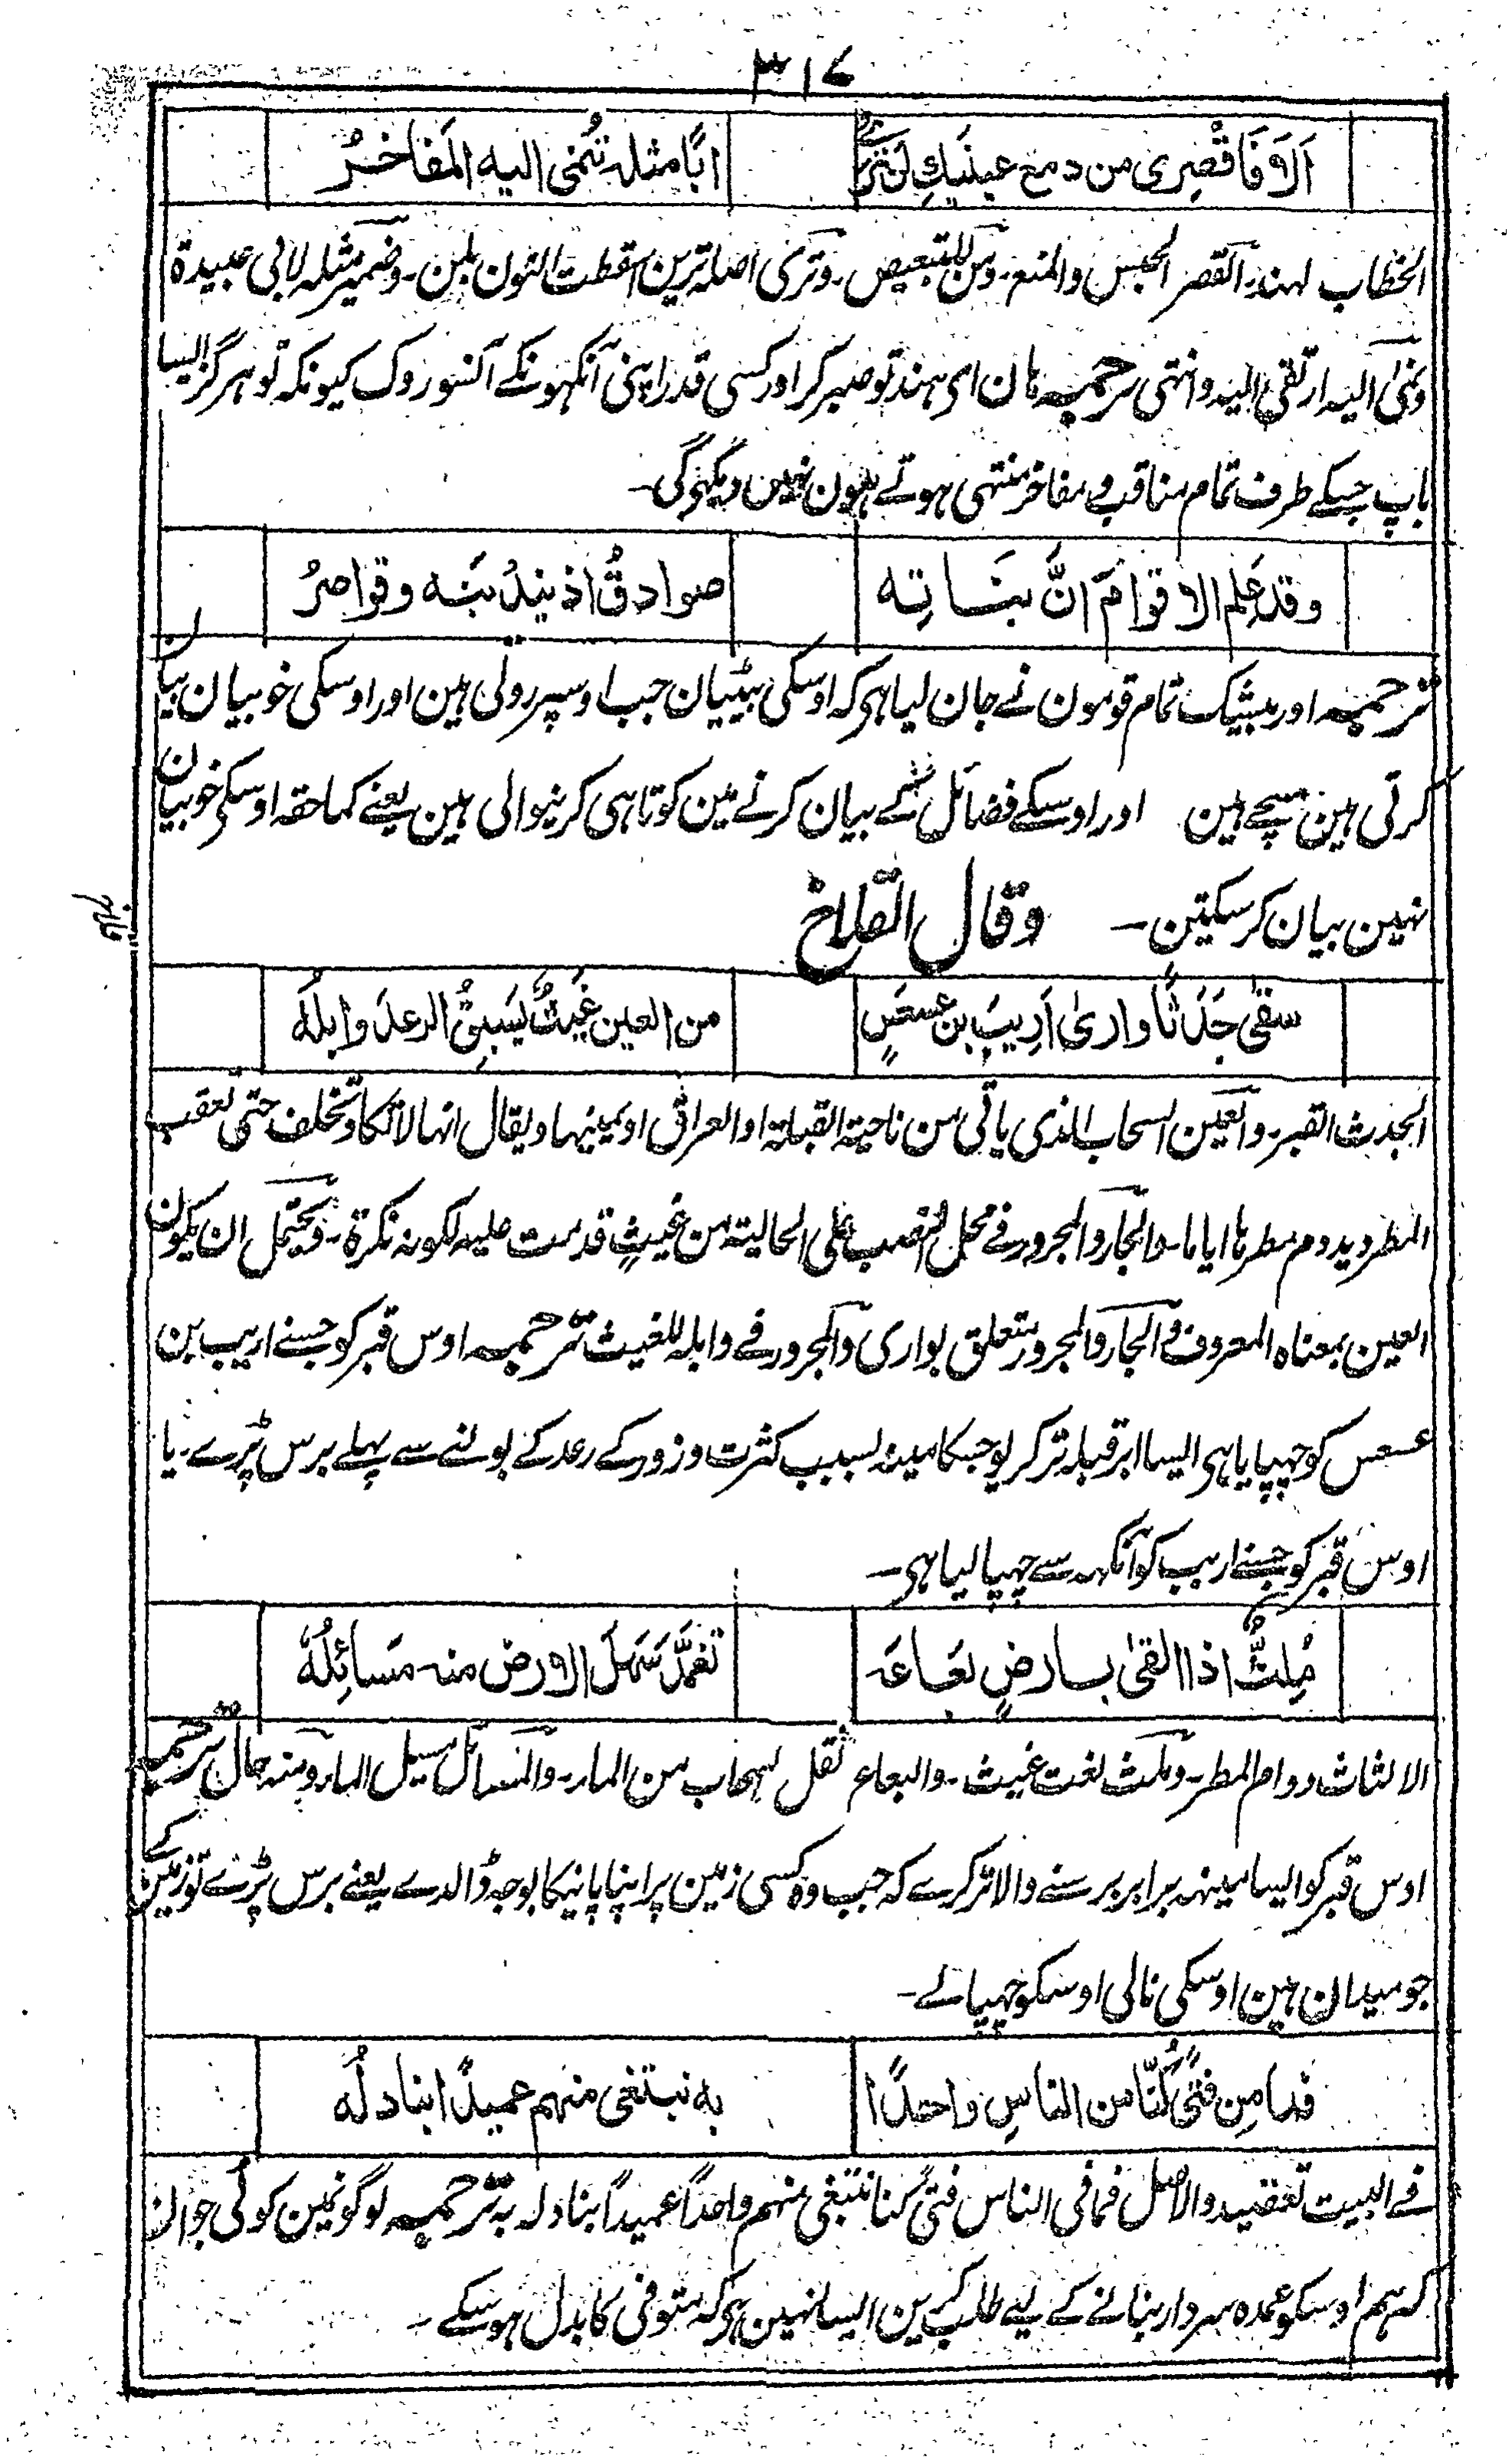 ٣١٧
اَلَا فَاقْصِرِی من دمع عینَیكِ لن تَرَیْ ابًا مثلہ تُنمٰی الیہ المَفاخرُ
الخطاب لہند۔ القصر الحبس والمنع۔ ومن للتبعیض۔ وتری اصلہ ترین اسقطت النون بلن۔ وضمیر مثلہ لابی عبیدة
ونمٰی الیہ ارتقی الیہ وانتہی ترجمہ ہان ای ہند تو صبر کر اور کسی قدر اپنی آنکہونکے آنسو روک کیونکہ تو ہرگز ایسا
باپ جسکے طرف تمام مناقب و مفاخر منتہی ہوتے ہون نہین دیکہیگی۔
وقد عَلِم الاقوامُ انَّ بنَاتِہ صوادقُ اذ یندُبنَہ وقواصرُ
ترجمہ اور بیشک تمام قومون نے جان لیا ہی کہ اوسکی بیٹیان جب اوسپر روتی ہین اور اوسکی خوبیان بیان
کرتی ہین سچے ہین اور اوسکے فضائل کے بیان کرنے مین کوتاہی کرنیوالی ہین یعنے کماحقہ اوسکی خوبیان
نہین بیان کر سکتین۔ وقال القلاخ
سقٰی جَدَثًا واریٰ اَرِیبَ بن عسعَسٍ من العین غَیثٌ یَسبِقُ الرعدَ وابلُہ
الجدث القبر۔ والعین السحاب الذی یاتی من ناحیة القبلة او العراق او یمینہا ویقال انہا لا تکاد تخلف حتّی تعقب
المطر ویدوم مطرہا ایاما۔ والجار والمجرور فے محل النصب علی الحالیة من غیثٍ قدمت علیہ لکونہ نکرة۔ ویحتمل ان یکون
العین بمعناہ المعروف والجار والمجرور متعلق بواری والمجرور فے وابلہ للغیث ترجمہ اوس قبر کو جسنے اریب بن
عسعس کو چہپایا ہی ایسا ابر قبلہ تر کریو جسکا مینہ بسبب کثرت وزور کے رعد کے بولنے سے پہلے برس پڑے۔ یا
اوس قبر کو جسنے اریب کو آنکہہ سے چہپا لیا ہی۔
مُلِثٌّ اذا القیٰ بارضٍ بَعاعَہ تغمَّدَ سَہلَ الارض منہ مَسائِلُہُ
الالثاث دوام المطر۔ وملث نعت غیث۔ والبعاع ثقل السحاب من الماء۔ والمسائل مسیل الماء ومنہ حال ترجمہ
اوس قبر کو ایسا مینہہ برابر برسنے والا تر کرے کہ جب وہ کسی زمین پر اپنا پانیکا بوجہ ڈالدے یعنے برس پڑے تو زمین کے
جو میدان ہین اوسکی نالی اوسکو چہپالے۔
فما مِن فتًی کُنّا من الناسِ واحدًا بہ نبتغی منہم عمیدًا نبادلُہ
فے البیت تعقید والاصل فما فی الناس فتیً کنا نبتغی منہم واحداً عمیداً نبادلہ بہ ترجمہ لوگونمین کوئی جوان
کہ ہم اوسکو عمدہ سردار بنانے کے لیے طلب کرین ایسا نہین ہی کہ متوفی کا بدل ہوسکے۔